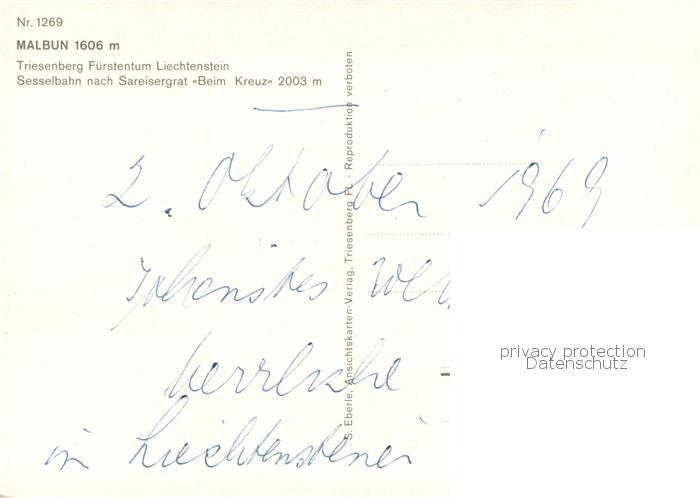 Nr. 1269
MALBUN 1606 m
Triesenberg Fürstentum Liechtenstein
Sesselbahn nach Sareisergrat «Beim Kreuz» 2003 m
S. Eberle, Ansichtskarten-Verlag, Triesenberg FL - Reproduktion verboten
2. Oktober 1969
herrliche
in Liechtenstener
privacy protection
Datenschutz